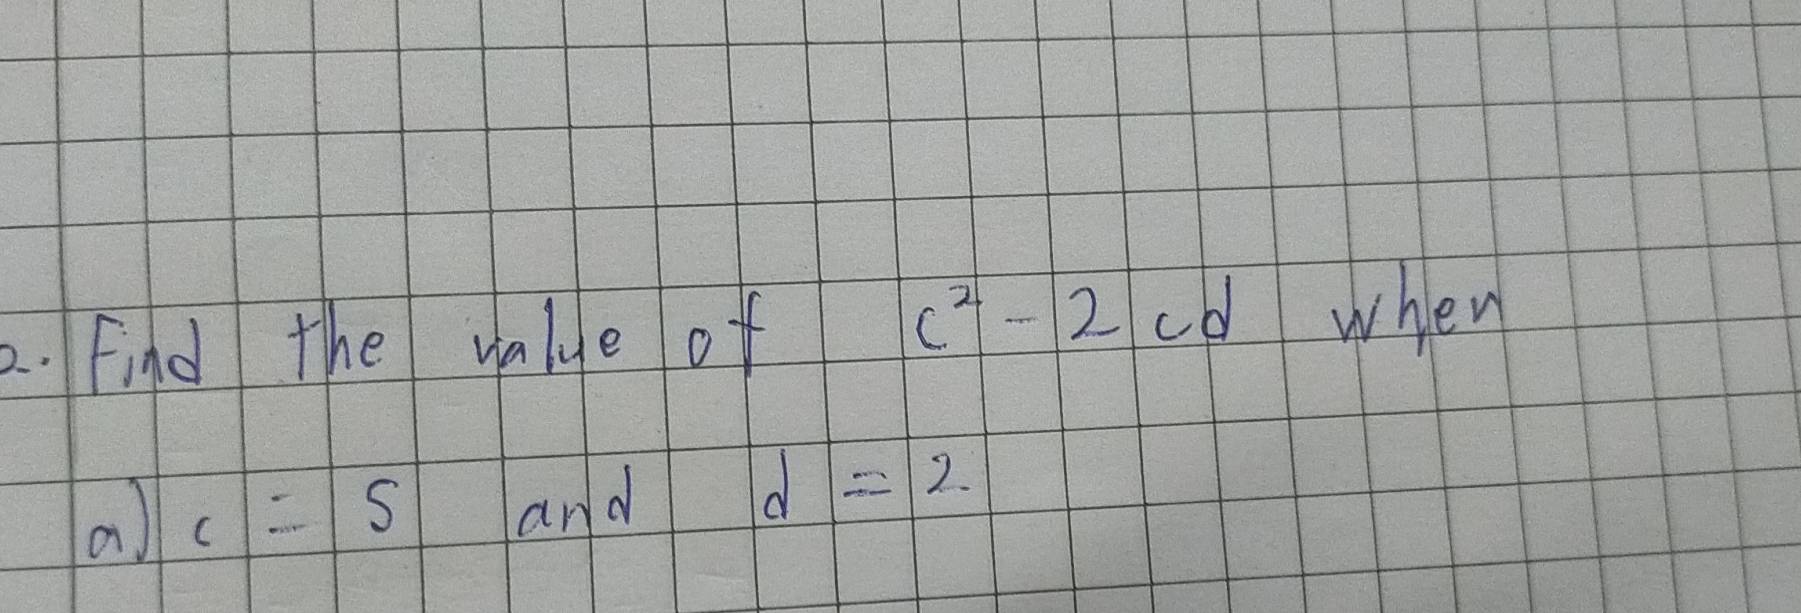 2. Find the value of c² - 2cd when
a) c = 5 and d = 2